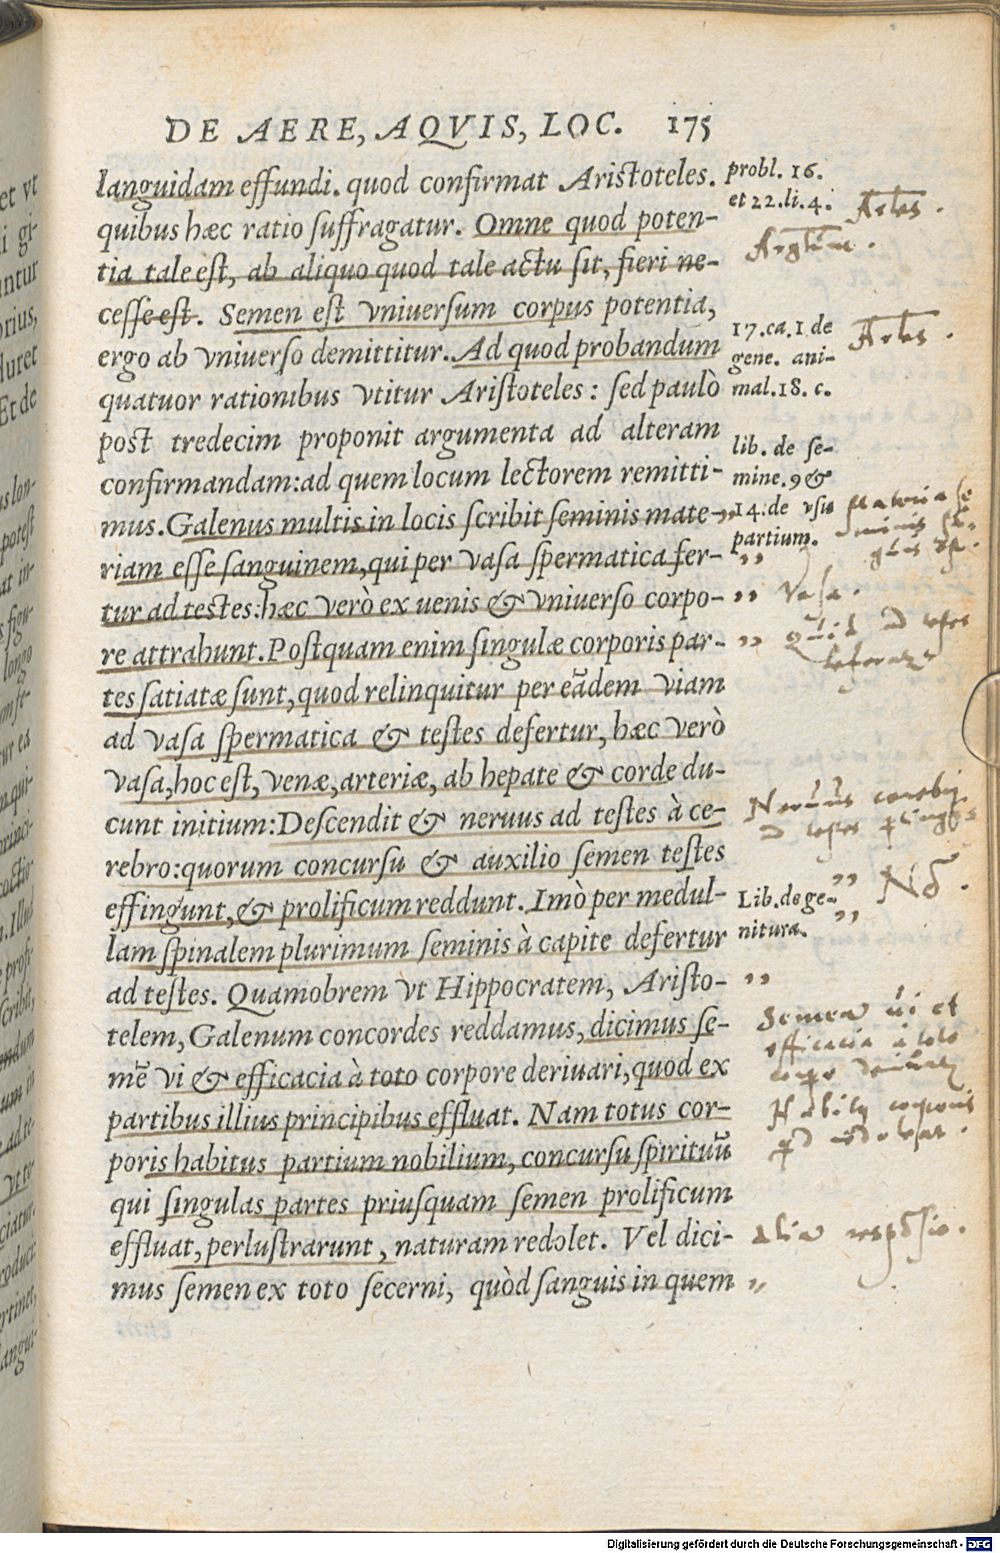 DE AERE, AQVIS, LOC. 175
languidam effundi. quod confirmat Aristoteles.
probl. 16.
et 22. li. 4.
quibus hæc ratio suffragatur. Omne quod poten-
tia tale est, ab aliquo quod tale actu sit, fieri ne-
cesse est. Semen est vniuersum corpus potentia,
ergo ab vniuerso demittitur. Ad quod probandum
17. ca. 1 de
gene. ani-
mal. 18. c.
quatuor rationibus vtitur Aristoteles: sed paulò
post tredecim proponit argumenta ad alteram
confirmandam: ad quem locum lectorem remitti-
lib. de se-
mine. 9 &
14. de vsu
partium.
mus. Galenus multis in locis scribit seminis mate-
riam esse sanguinem, qui per vasa spermatica fer-
tur ad testes: hæc verò ex uenis & vniuerso corpo-
Vasa.
re attrahunt. Postquam enim singulæ corporis par-
tes satiatæ sunt, quod relinquitur per eãdem viam
ad vasa spermatica & testes defertur, hæc verò
vasa, hoc est, venæ, arteriæ, ab hepate & corde du-
cunt initium: Descendit & neruus ad testes à ce-
rebro: quorum concursu & auxilio semen testes
effingunt, & prolificum reddunt. Imò per medul-
Lib. de ge-
nitura.
lam spinalem plurimum seminis à capite defertur
ad testes. Quamobrem vt Hippocratem, Aristo-
telem, Galenum concordes reddamus, dicimus se-
mẽ vi & efficacia à toto corpore deriuari, quod ex
Semen ui et
efficacia à toto
partibus illius principibus effluat. Nam totus cor-
poris habitus partium nobilium, concursu spirituũ
qui singulas partes priusquam semen prolificum
effluat, perlustrarunt, naturam redolet. Vel dici-
alia respõsio.
mus semen ex toto secerni, quòd sanguis in quem
Digitalisierung gefördert durch die Deutsche Forschungsgemeinschaft - DFG